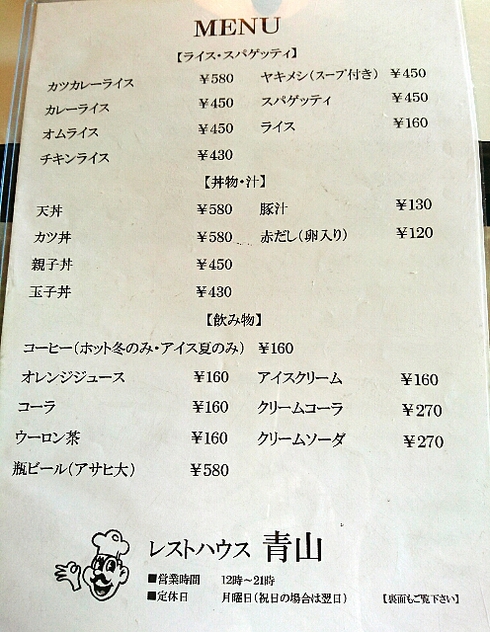 MENU
【ライス・スパゲッティ】
カツカレーライス ¥580 ヤキメシ(スープ付き) ¥450
カレーライス ¥450 スパゲッティ ¥450
オムライス ¥450 ライス ¥160
チキンライス ¥430
【丼物・汁】
天丼 ¥580 豚汁 ¥130
カツ丼 ¥580 赤だし(卵入り) ¥120
親子丼 ¥450
玉子丼 ¥430
【飲み物】
コーヒー(ホット冬のみ・アイス夏のみ) ¥160
オレンジジュース ¥160 アイスクリーム ¥160
コーラ ¥160 クリームコーラ ¥270
ウーロン茶 ¥160 クリームソーダ ¥270
瓶ビール(アサヒ大) ¥580
レストハウス 青山
■営業時間 12時~21時
■定休日 月曜日(祝日の場合は翌日) 【裏面もご覧下さい】